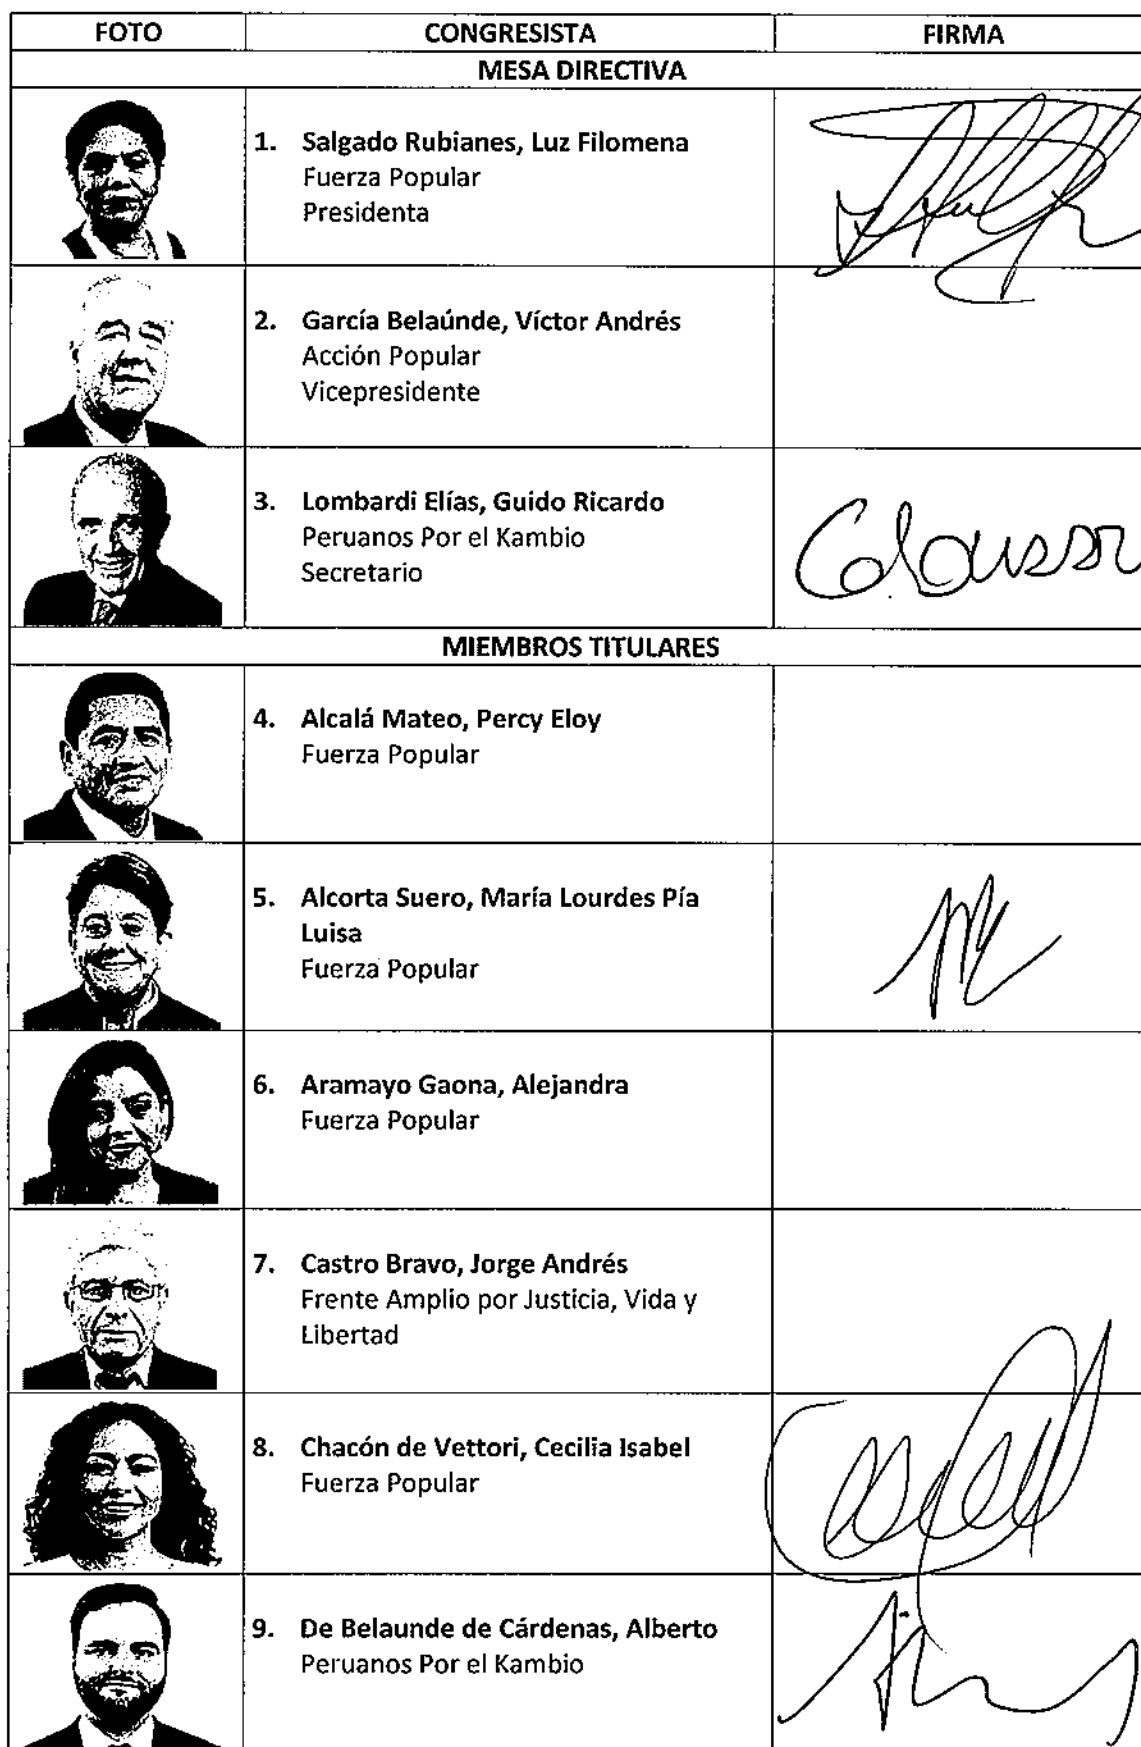 FOTO CONGRESISTA FIRMA
MESA DIRECTIVA
1. Salgado Rubianes, Luz Filomena
Fuerza Popular
Presidenta
2. García Belaúnde, Víctor Andrés
Acción Popular
Vicepresidente
3. Lombardi Elías, Guido Ricardo
Peruanos Por el Kambio
Secretario
MIEMBROS TITULARES
4. Alcalá Mateo, Percy Eloy
Fuerza Popular
5. Alcorta Suero, María Lourdes Pía
Luisa
Fuerza Popular
6. Aramayo Gaona, Alejandra
Fuerza Popular
7. Castro Bravo, Jorge Andrés
Frente Amplio por Justicia, Vida y
Libertad
8. Chacón de Vettori, Cecilia Isabel
Fuerza Popular
9. De Belaunde de Cárdenas, Alberto
Peruanos Por el Kambio